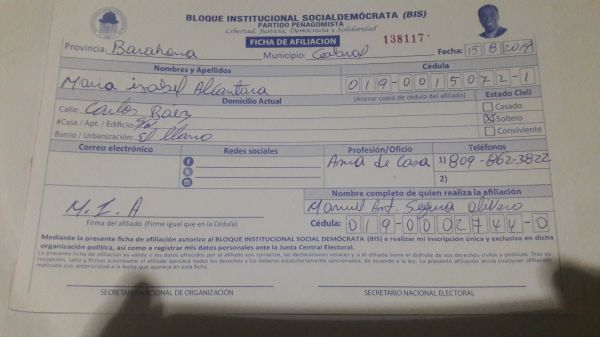 BLOQUE INSTITUCIONAL SOCIALDEMÓCRATA (BIS)
PARTIDO PEÑAGOMISTA
Libertad, Justicia, Democracia y Solidaridad
FICHA DE AFILIACION 138117
Provincia: Barahona Municipio: Cabral Fecha: 15 8 2019
Nombres y Apellidos Cédula
Maria isabel Alcantara 019-0015072-1
Domicilio Actual (Anexar copia de cédula del afiliado) Estado Civil
Calle: Carlos Báez Casado
#Casa / Apt. / Edificio: S/N Soltero
Barrio / Urbanización: El llano Conviviente
Correo electrónico Redes sociales Profesión/Oficio Teléfonos
Ama de Casa 1) 809-862-3822
2)
Nombre completo de quien realiza la afiliación
M. I. A Manuel Ant. Segura
Firma del afiliado (Firme igual que en la Cédula) Cédula: 019-0002744-0
Mediante la presente ficha de afiliación autorizo al BLOQUE INSTITUCIONAL SOCIAL DEMÓCRATA (BIS) a realizar mi inscripción única y exclusiva en dicha
organización política, así como a registrar mis datos personales ante la Junta Central Electoral.
La presente ficha de afiliación es válida si los datos ofrecidos por el afiliado son correctos, las declaraciones veraces y si el afiliado tiene el disfrute de sus derechos civiles y políticos. Tras su
recepción, sello y firmas autorizadas el afiliado ejercerá todos los derechos y los deberes estatutariamente sancionados, de acuerdo a la ley. La presente afiliación anula cualquier afiliación
realizada con anterioridad a la fecha que aparece en esta ficha.
SECRETARIO NACIONAL DE ORGANIZACIÓN SECRETARIO NACIONAL ELECTORAL